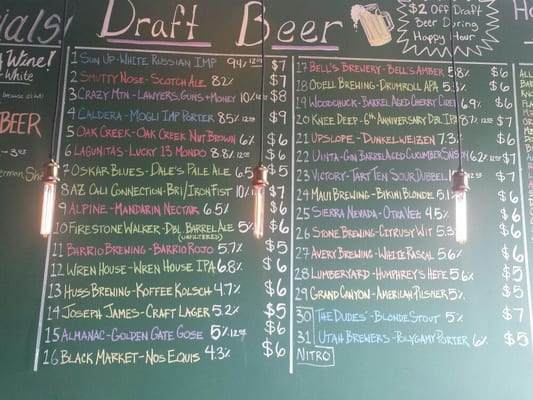 Specials
Draft Beer
$2 Off Draft
Beer During
Happy Hour
Wine!
-White
BEER
1 Sun Up-White Russian Imp 9.4% 12oz $7
2 Smutty Nose-Scotch Ale 8.2% $7
3 Crazy Mtn-Lawyers, Guns + Money 10% 12oz $8
4 Caldera-Mogli Imp Porter 8.5% 12oz $9
5 Oak Creek-Oak Creek Nut Brown $6
6 Lagunitas-Lucky 13 Mondo 8.8% 12oz $6
7 Oskar Blues-Dale's Pale Ale 6.5% $5
8 AZ Cali Connection-Bri/Iron Fist 10% $7
9 Alpine-Mandarin Nectar 6.5% $6
10 Firestone Walker-Dbl Barrel Ale 5% $6
(unfiltered)
11 Barrio Brewing-Barrio Rojo 5.7% $5
12 Wren House-Wren House IPA 6.8% $6
13 Huss Brewing-Koffee Kolsch 4.7% $6
14 Joseph James-Craft Lager 5.2% $5
15 Almanac-Golden Gate Gose 5% 12oz $6
16 Black Market-Nos Equis 4.3% $6
17 Bell's Brewery-Bell's Amber 5.8% $6
18 Odell Brewing-Drumroll APA 5.3% $6
19 Woodchuck-Barrel Aged Cherry Cider 6.9% $6
20 Knee Deep-6th Anniversary Dbl IPA $6
21 Upslope-Dunkelweizen 7.3% $6
22 Uinta-Gin Barrel Aged Cucumber Saison $7
23 Victory-Tart Ten Sour Dubbel $7
24 Maui Brewing-Bikini Blonde 5.1% $6
25 Sierra Nevada-Otra Vez 4.5% $6
26 Stone Brewing-Citrusy Wit 5.3% $6
27 Avery Brewing-White Rascal 5.6% $6
28 Lumberyard-Humphrey's Hefe 5.6% $5
29 Grand Canyon-American Pilsner 5% $5
30 The Dudes'-Blonde Stout 5% $7
31 Utah Brewers-Polygamy Porter 6% $5
Nitro